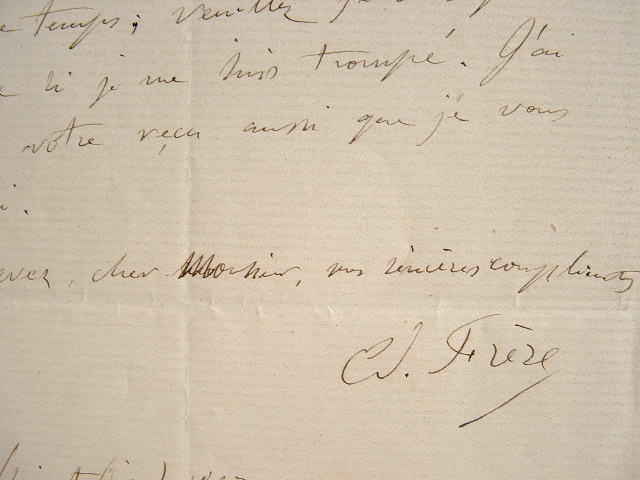 temps ; veuillez
si je me suis trompé. J'ai
votre reçu aussi que je vous
i.
evez, cher Monsieur, mes sincères compliments
Ed. Frère